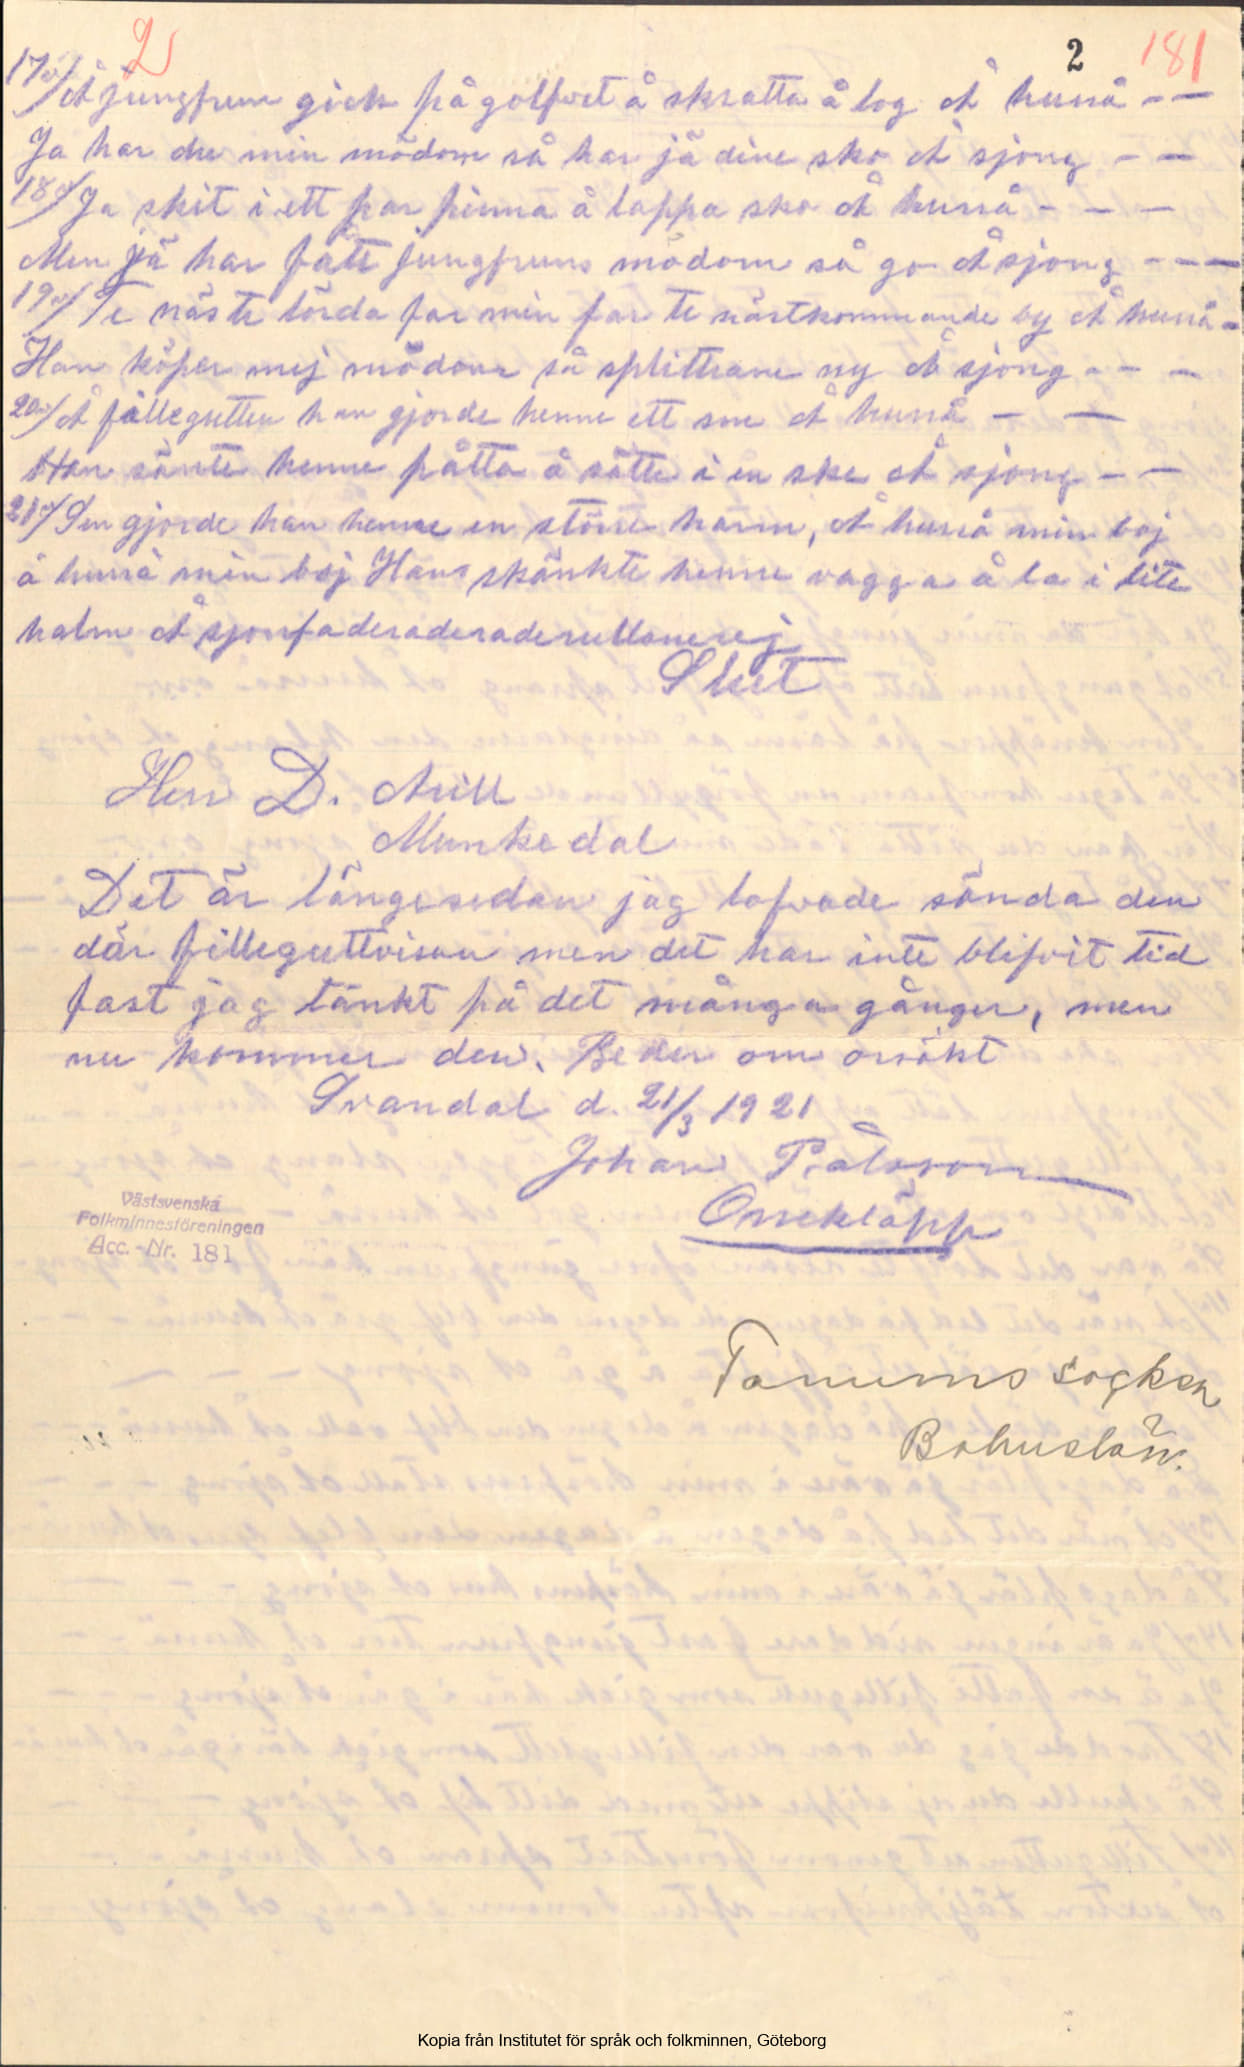 2 2 181
17de/ Å jungfrun gick på golfvet å skratta å log Å hurrå – –
Ja har du min mödom så har jä dine sko Å sjong – –
18de/ Ja skit i ett par pinna å lappa sko Å hurrå – – –
Men jä har fått jungfruns mödom så go Å sjong – – –
19de/ Te näste lörda far min far te närstkommande by Å hurrå –
Han köper mej mödom så splitterne ny Å sjong – – –
20de/ Å fillegutten han gjorde henne ett Å hurrå – –
Han sänte henne påtta å sätte i en ske Å sjong – –
21de/ Sen gjorde han henne en större harm, Å hurrå min boj
å hurrå min boj Hans skänkte henne vagga å la i lite
halm Å
Slut
Herr D. Arill
Munkedal
Det är längesedan jag lofvade sända den
där filleguttvisan men det har inte blifvit tid
fast jag tänkt på det många gånger, men
nu kommer den. Beder om orsäkt
Svandal d. 21/3 1921
Johan
Orrekläpp
Västsvenska
Folkminnesföreningen
Acc.-Nr. 181
Tanums socken
Bohuslän.
Kopia från Institutet för språk och folkminnen, Göteborg